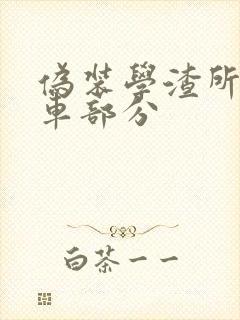 偽裝學渣所
車部分
白茶一一